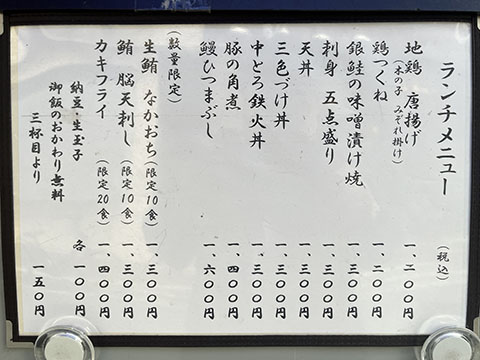 ランチメニュー (税込)
地鶏 唐揚げ 一、二〇〇円
(木の子 みぞれ掛け)
鶏つくね 一、二〇〇円
銀鮭の味噌漬け焼 一、三〇〇円
刺身 五点盛り 一、三〇〇円
天丼 一、三〇〇円
三色づけ丼 一、三〇〇円
中とろ鉄火丼 一、三〇〇円
豚の角煮 一、四〇〇円
鰻ひつまぶし 一、六〇〇円
(数量限定)
生鮪 なかおち(限定10食) 一、三〇〇円
鮪 脳天刺し(限定10食) 一、三〇〇円
カキフライ(限定20食) 一、四〇〇円
納豆・生玉子 各 一〇〇円
御飯のおかわり無料
三杯目より 一五〇円